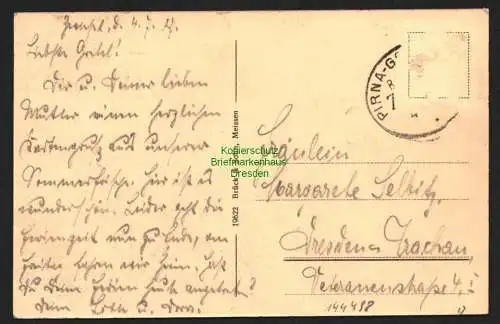 d. 4. 7. 27.
Liebste Gretel!
Dir u. Deiner lieben
Mutter einen herzlichen
Kartengruß aus unserer
Sommerfrische. Hier ist es
wunderschön. Leider geht die
Ferienzeit nun zu Ende, am
fahren wir heim. Hast
Du Deine Ferien heute angetreten?
Deine
19622 Brück & Sohn, Meissen
Kopierschutz
Briefmarkenhaus
Dresden
PIRNA-G
Fräulein
Margarete Selbitz,
Dresden Trachau,
Veteranenstraße 4. I
144498